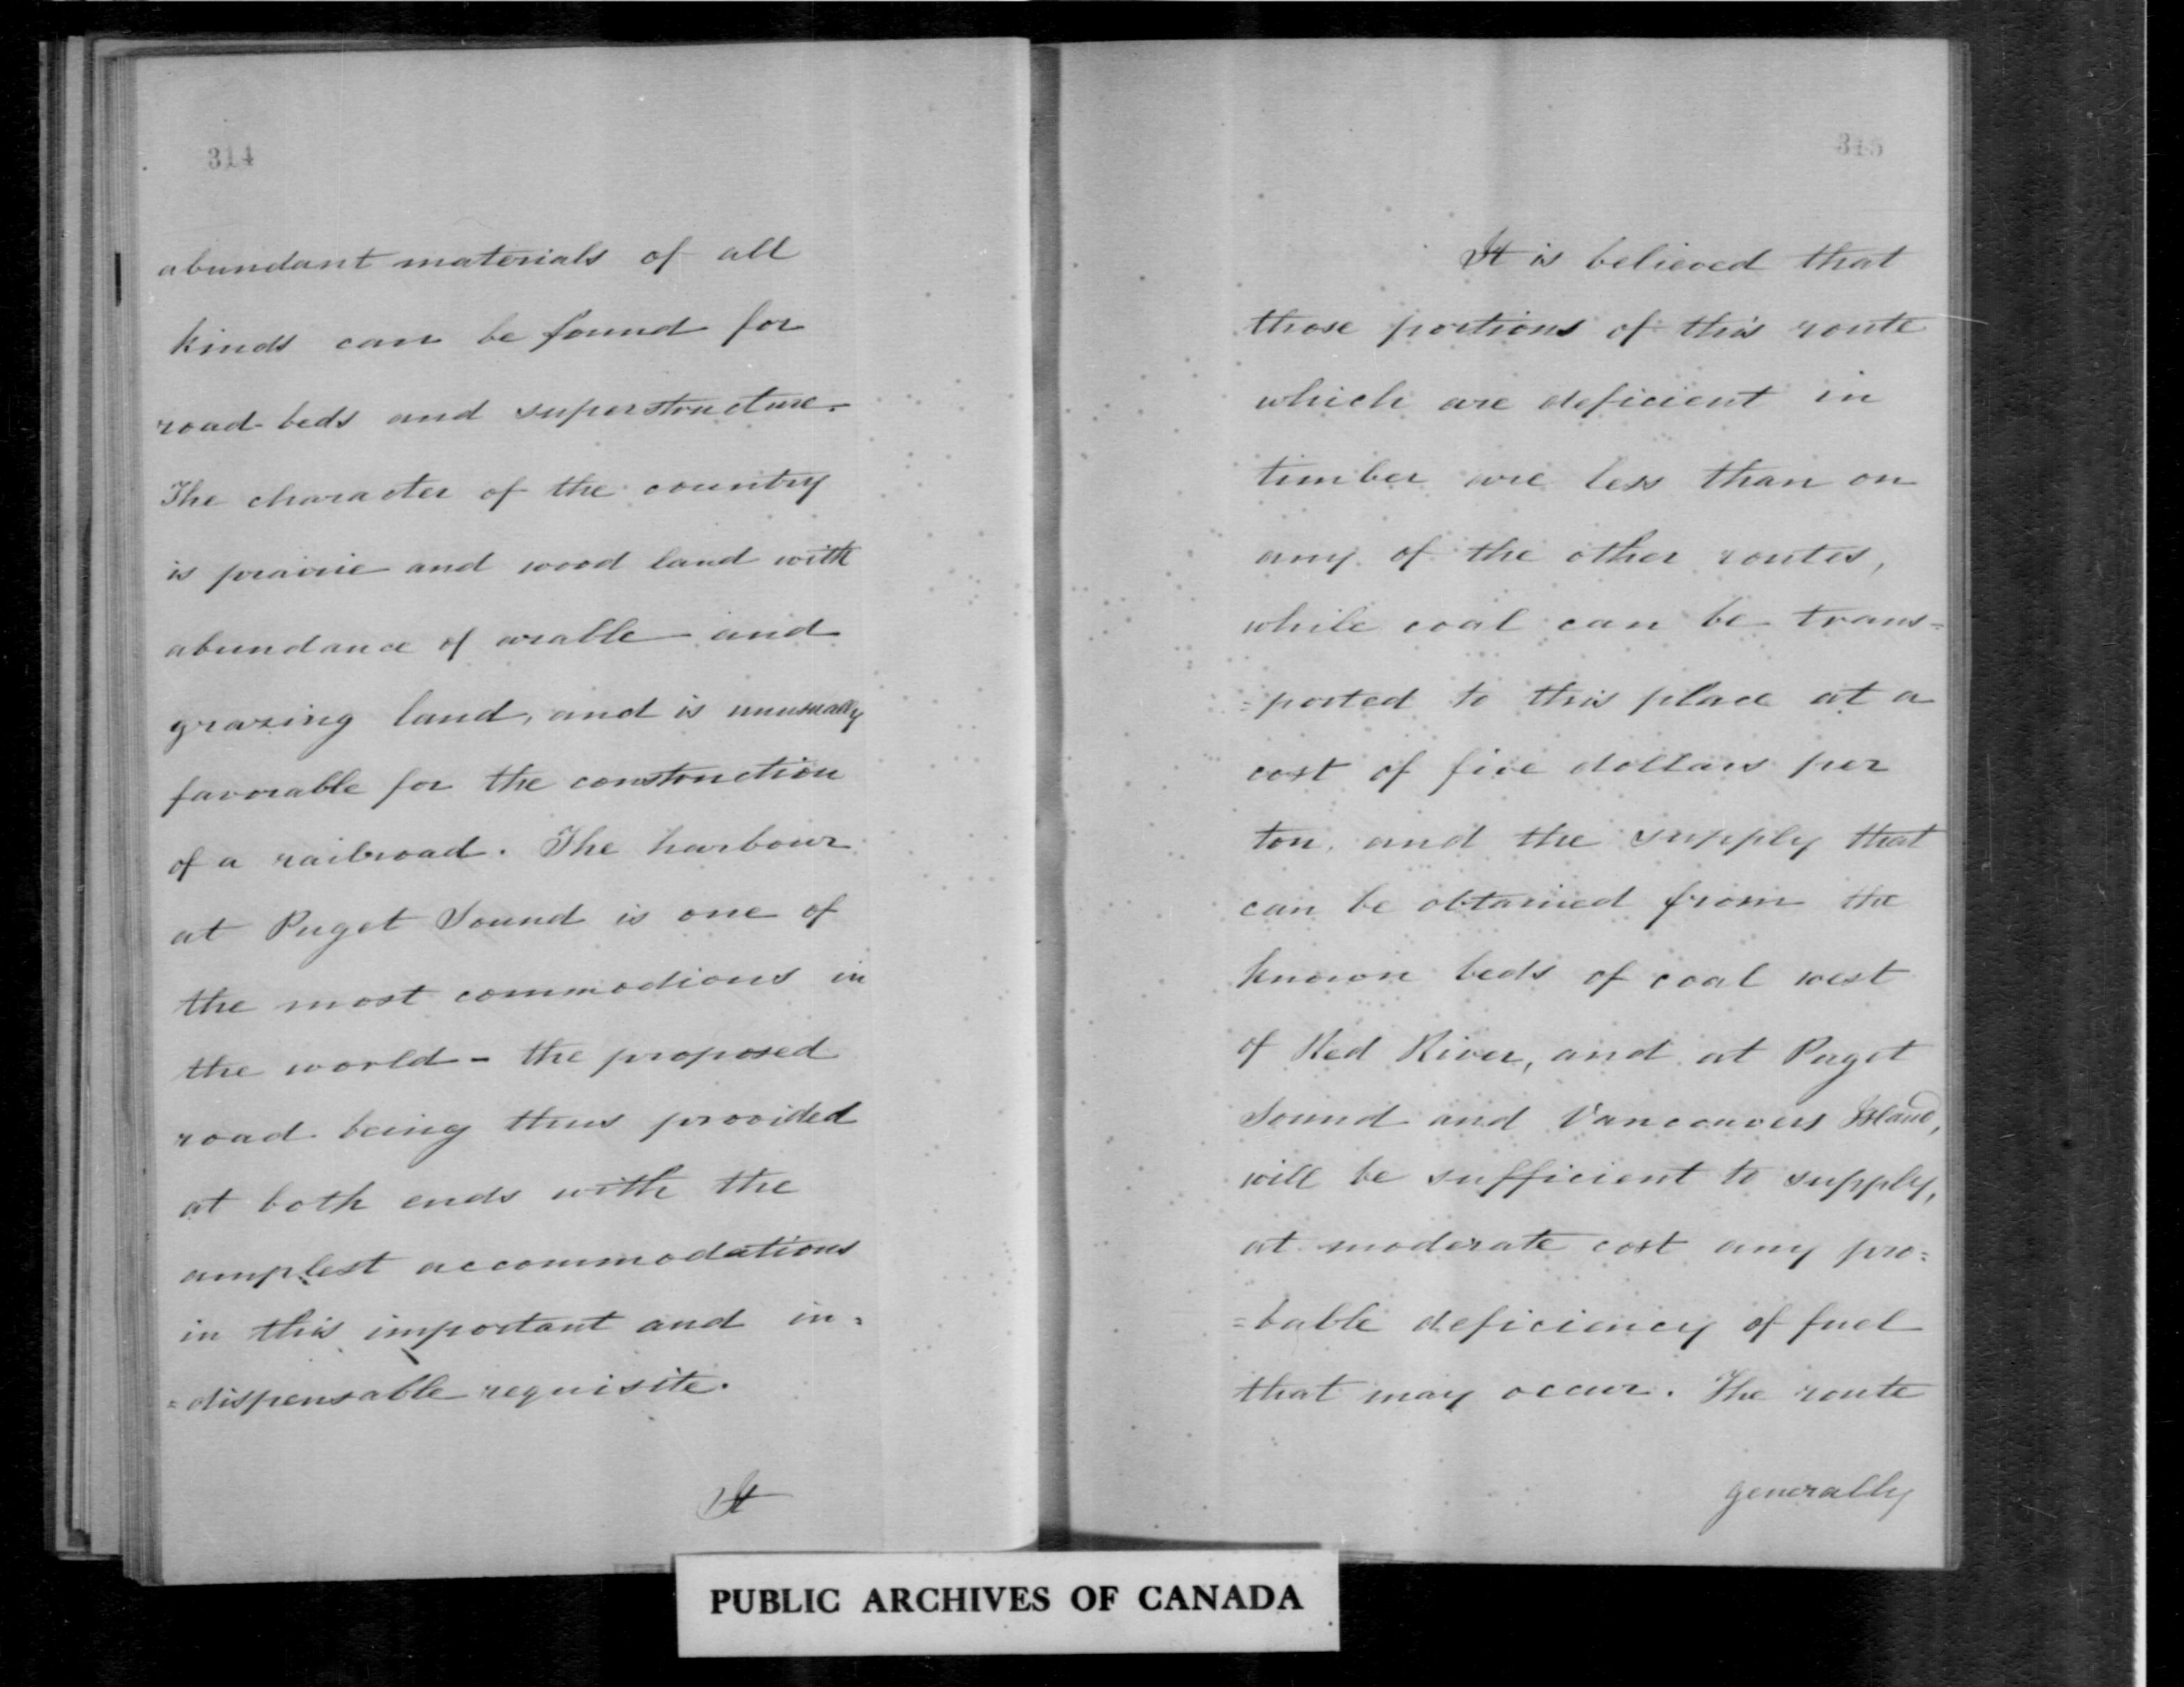 314
abundant materials of all
kinds can be found for
road beds and superstructure.
The character of the country
is prairie and wood land with
abundance of arable and
grazing land, and is unusually
favorable for the construction
of a railroad. The harbour
at Puget Sound is one of
the most commodious in
the world - the proposed
road being thus provided
at both ends with the
amplest accommodations
in this important and in=
=dispensable requisite.
It
315
It is believed that
those portions of this route
which are deficient in
timber are less than on
any of the other routes,
while coal can be trans=
=ported to this place at a
cost of five dollars per
ton, and the supply that
can be obtained from the
known beds of coal west
of Red River, and at Puget
Sound and Vancouvers Island,
will be sufficient to supply,
at moderate cost any pro=
=bable deficiency of fuel
that may occur. The route
generally
PUBLIC ARCHIVES OF CANADA